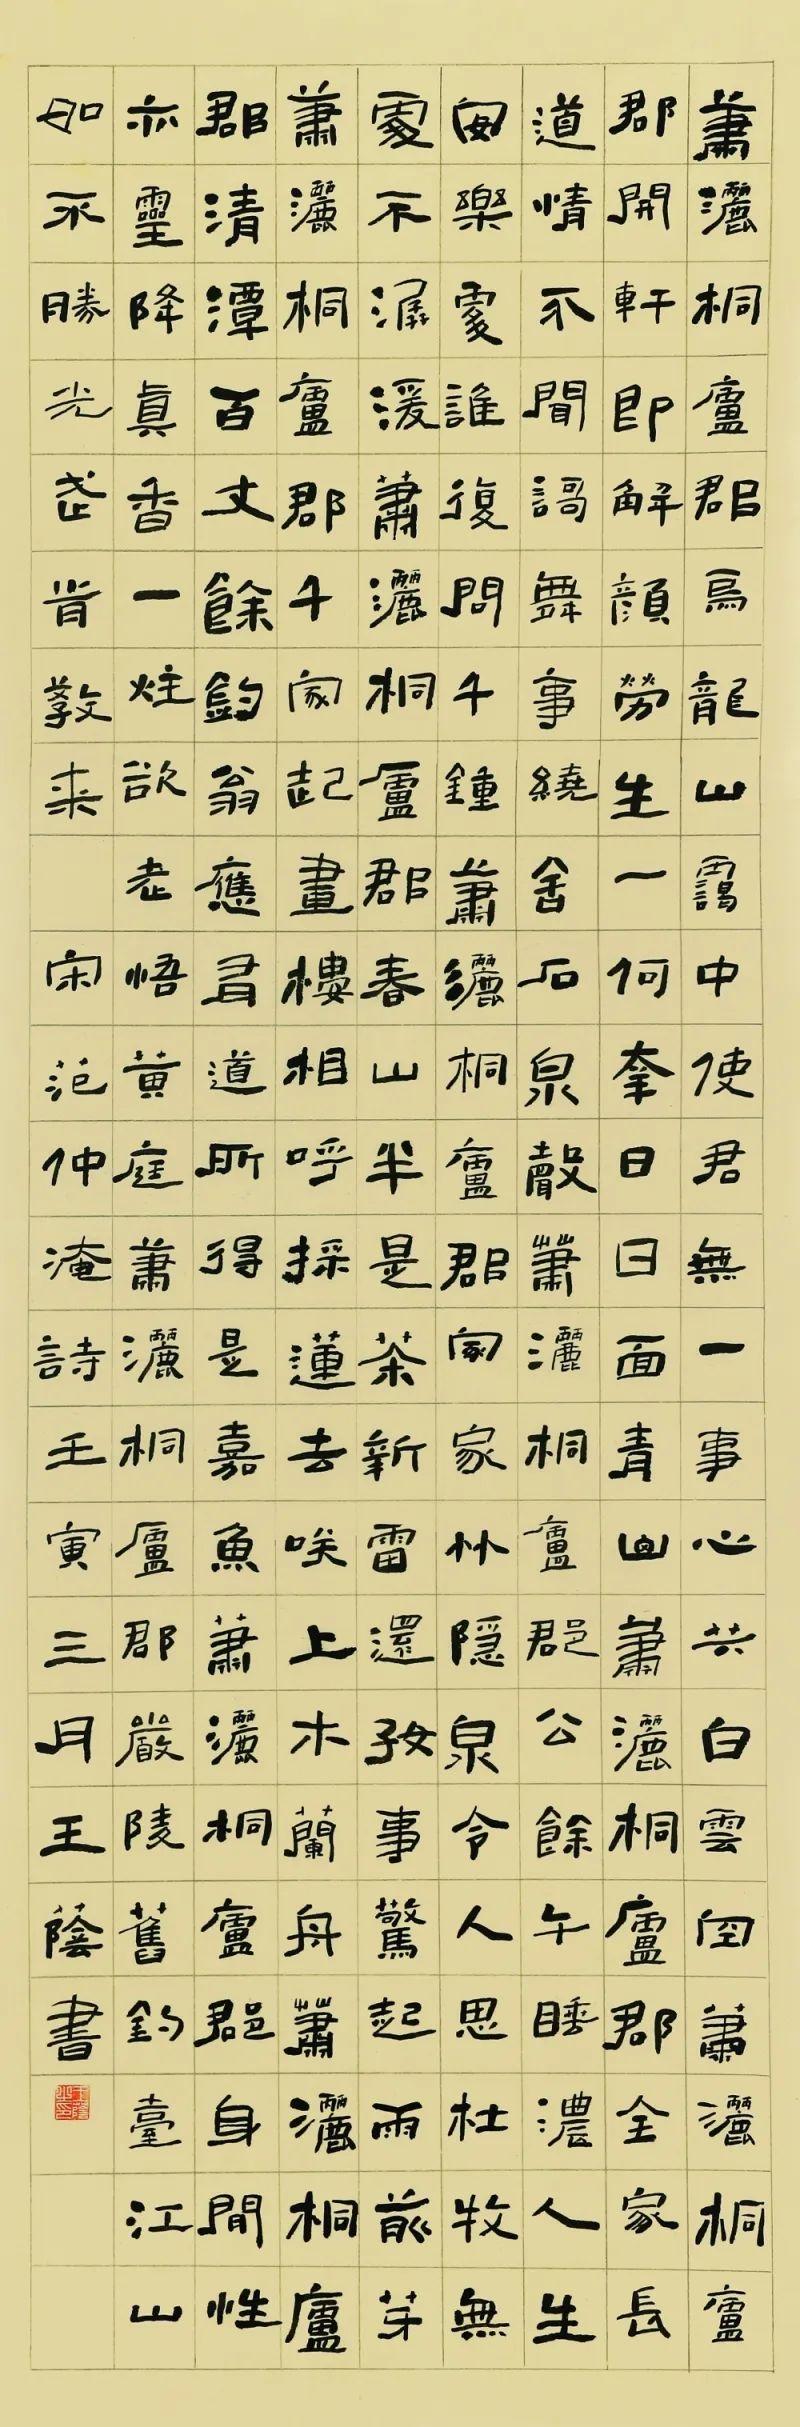 蕭灑桐廬郡烏龍山靄中使君無一事心共白雲空蕭灑桐廬
郡開軒即解顏勞生一何幸日日面青山蕭灑桐廬郡全家長
道情不聞謌舞事繞舍石泉聲蕭灑桐廬郡公餘午睡濃人生
安樂處誰復問千鍾蕭灑桐廬郡家家竹隱泉令人思杜牧無
處不潺湲蕭灑桐廬郡春山半是茶新雷還好事驚起雨前芽
蕭灑桐廬郡千家起畫樓相呼採蓮去咲上木蘭舟蕭灑桐廬
郡清潭百丈餘釣翁應有道所得是嘉魚蕭灑桐廬郡身閒性
亦靈降真香一炷欲老悟黃庭蕭灑桐廬郡嚴陵舊釣臺江山
如不勝光武肯教来 宋范仲淹詩壬寅三月王蔭書